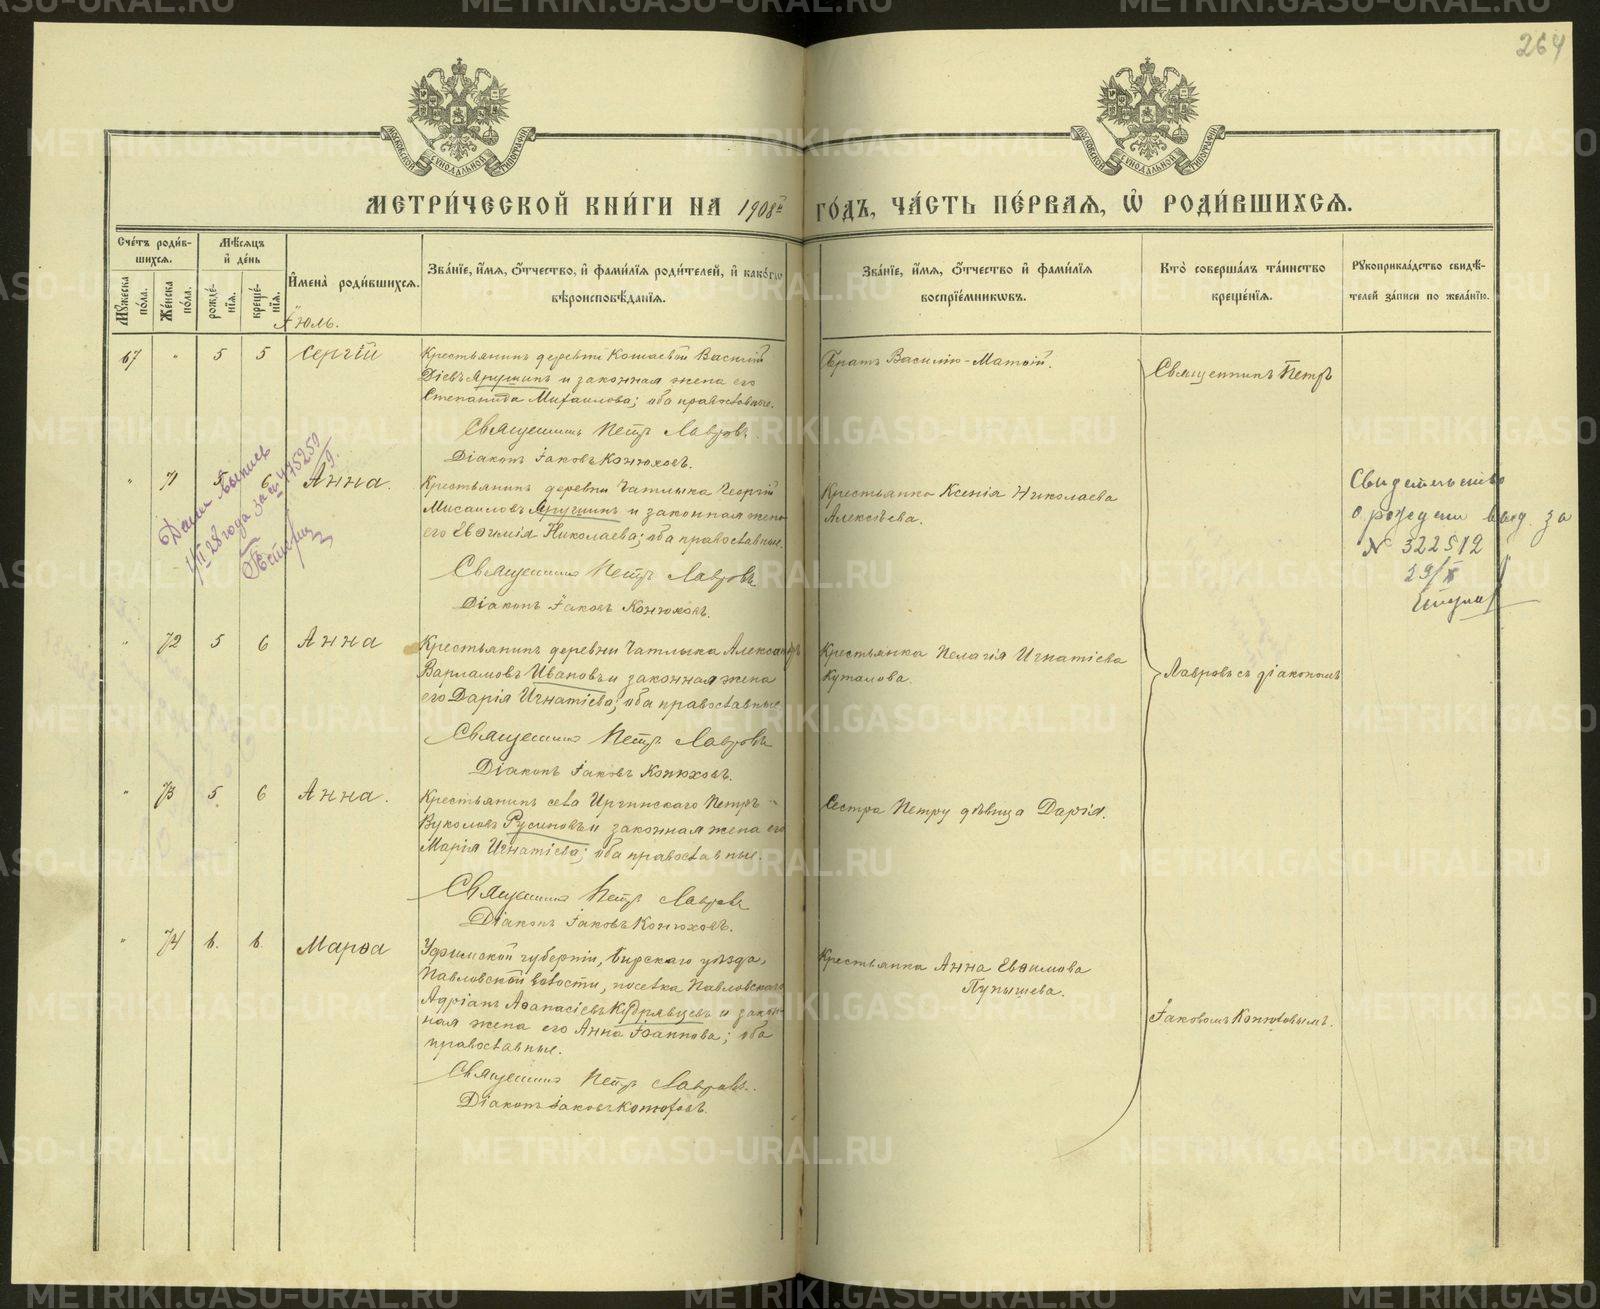 264
МОСКОВСКОЙ СѴНОДАЛЬНОЙ ТИПОГРАФІИ
МОСКОВСКОЙ СѴНОДАЛЬНОЙ ТИПОГРАФІИ
МЕТРИ́ЧЕСКОЙ КНИ́ГИ НА 1908й ГО́ДЪ, ЧА́СТЬ ПЕ́РВАЯ, Ѡ РОДИ́ВШИХСЯ.
Сче́тъ роди́в-
шихся.
Мѣ́сяцъ
и҆ де́нь
Мꙋ́жеска по́ла.
Же́нска по́ла.
рожде́-
нїѧ.
креще́-
нїѧ.
И҆мена̀ роди́вшихся.
Зва́нїе, и҆́мя, ѻ҆́тчество, и҆ фами́лїя роди́телей, и҆ како́гѡ
вѣроисповѣ́данїя.
Зва́нїе, и҆́мя, ѻ҆́тчество и҆ фами́лїя
воспрїе́мникѡвъ.
Кто̀ соверша́лъ та́инство
креще́нїя.
Рꙋкоприкла́дство свидѣ́-
телей за́писи по жела́нїю.
Іюль.
67 " 5 5 Сергій
Крестьянинъ деревни Кошаевой Василій
Діевъ Ярушинъ и законная жена его
Степанида Михаилова; оба православные.
Священникъ Петръ Лавровъ
Діаконъ Іаковъ Конюховъ.
Братъ Василію - Матѳій.
Священникъ Петръ
" 71 5 6 Анна.
Крестьянинъ деревни Чатлыка Георгій
Мисаиловъ Ярушинъ и законная жена
его Евѳимія Николаева; оба православные.
Священникъ Петръ Лавровъ
Діаконъ Іаковъ Конюховъ.
Крестьянка Ксенія Николаева
Алексѣева.
Свидетельство
о рожден выд. за
№ 322512
29/X
" 72 5 6 Анна
Крестьянинъ деревни Чатлыка Александръ
Варламовъ Ивановъ и законная жена
его Дарія Игнатіева; оба православные
Священникъ Петръ Лавровъ
Діаконъ Іаковъ Конюховъ.
Крестьянка Пелагія Игнатіева
Куталова.
Лавровъ съ діакономъ
" 73 5 6 Анна.
Крестьянинъ села Иргинскаго Петръ
Вуколовъ Русиновъ и законная жена его
Марія Игнатіева; оба православные.
Священникъ Петръ Лавровъ
Діаконъ Іаковъ Конюховъ.
Сестра Петру дѣвица Дарія.
" 74 6. 6. Марѳа
Уфимской губерніи, Бирскаго уѣзда,
Павловской волости, поселка Павловскаго
Адріанъ Аѳанасіевъ Кудрявцевъ и закон-
ная жена его Анна Іоаннова; оба
православные.
Священникъ Петръ Лавровъ.
Діаконъ Іаковъ Конюховъ.
Крестьянка Анна Евѳимова
Пупышева.
Іаковомъ Конюховымъ.
Дана выпись
1/II 28 года за № 475259
METRIKI.GASO-URAL.RU